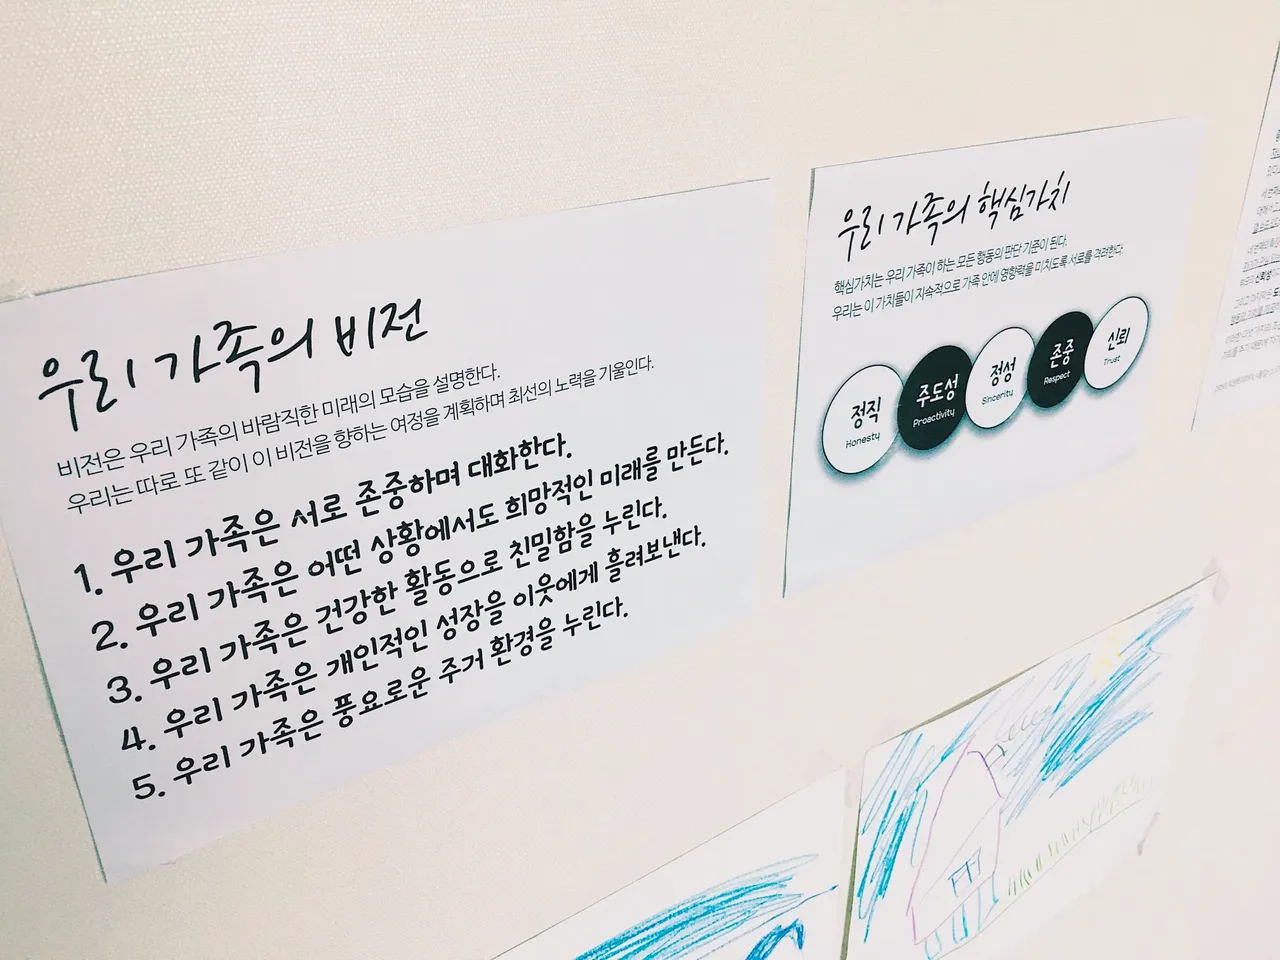 우리 가족의 비전
비전은 우리 가족의 바람직한 미래의 모습을 설명한다.
우리는 따로 또 같이 이 비전을 향하는 여정을 계획하며 최선의 노력을 기울인다.
1. 우리 가족은 서로 존중하며 대화한다.
2. 우리 가족은 어떤 상황에서도 희망적인 미래를 만든다.
3. 우리 가족은 건강한 활동으로 친밀함을 누린다.
4. 우리 가족은 개인적인 성장을 이웃에게 흘려보낸다.
5. 우리 가족은 풍요로운 주거 환경을 누린다.
우리 가족의 핵심가치
핵심가치는 우리 가족이 하는 모든 행동의 판단 기준이 된다.
우리는 이 가치들이 지속적으로 가족 안에 영향력을 미치도록 서로를 격려한다.
정직
Honesty
주도성
Proactivity
정성
Sincerity
존중
Respect
신뢰
Trust